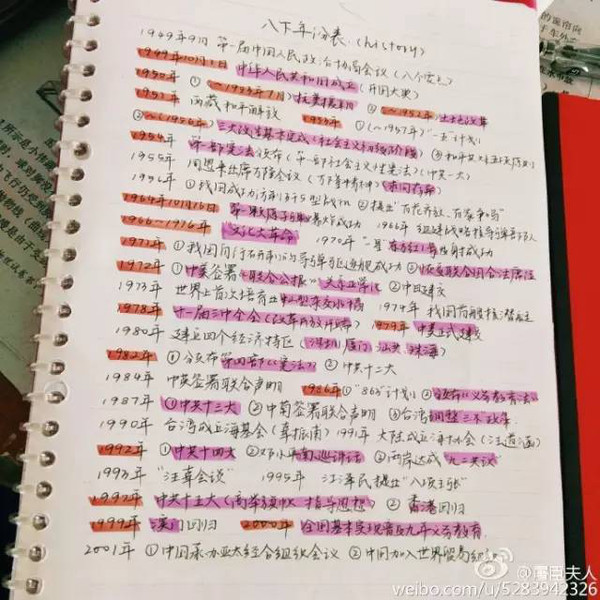 八下年份表 (history)
1949年9月 第一届中国人民政治协商会议(八个
1949年10月1日 中华人民共和国成立(开国大典)
1950年 ①(~1953年7月)抗美援朝 ②(~1952年)土地改革
1951年 西藏和平解放 1953年 ①(~1957年)"一五"计划
②(~1956年)三大改造基本完成(社会主义初级阶段) ③和平共处五项原则
1954年 第一部宪法颁布(第一部社会主义性宪法)
1955年 周恩来出席万隆会议(万隆精神)求同存异
1956年 ①我国成功济 5型战机 ②提出"百花齐放、百家争鸣"
1964年10月16日 第一颗原子弹爆炸成功 1966年 组建战略导弹部队
1966~1976年 "文化大革命" 1970年 "一星东方红"发射成功
1971年 ①我国自行研制的导弹驱逐舰成功 ②恢复联合国合法席位
1972年 ①中美签署《联合公报》关系正常化 ②中日建交
1973年 世界上首次培育出籼型杂交水稻 1974年 我国首艘核潜艇
1978年 十一届三中全会(改革开放开端) 1979年 中美正式建交
1980年 建立四个经济特区(深圳 厦门 汕头 珠海)
1982年 ①颁布第四部《宪法》 ②中共十二大
1984年 中英签署联合声明 1986年 ①"863"计划 ②颁布《义务教育法》
1987年 ①中共十三大 ②中葡签署联合声明 ③台湾调整三不政策
1990年 台湾成立海基会(辜振甫) 1991年 大陆成立海协会(汪道涵)
1992年 ①中共十四大 ②邓小平南巡讲话 ③两岸达成"九二共识"
1993年 "汪辜会谈" 1995年 江泽民提出"八项主张"
1997年 中共十五大(邓 指导思想) ②香港回归
1999年 澳门回归 2000年 全国基本实现普及九年义务教育
2001年 ①中国承办亚太经合组织会议 ②中国加入世界贸易组织
@屠囸夫人
weibo.com/u/5283942326